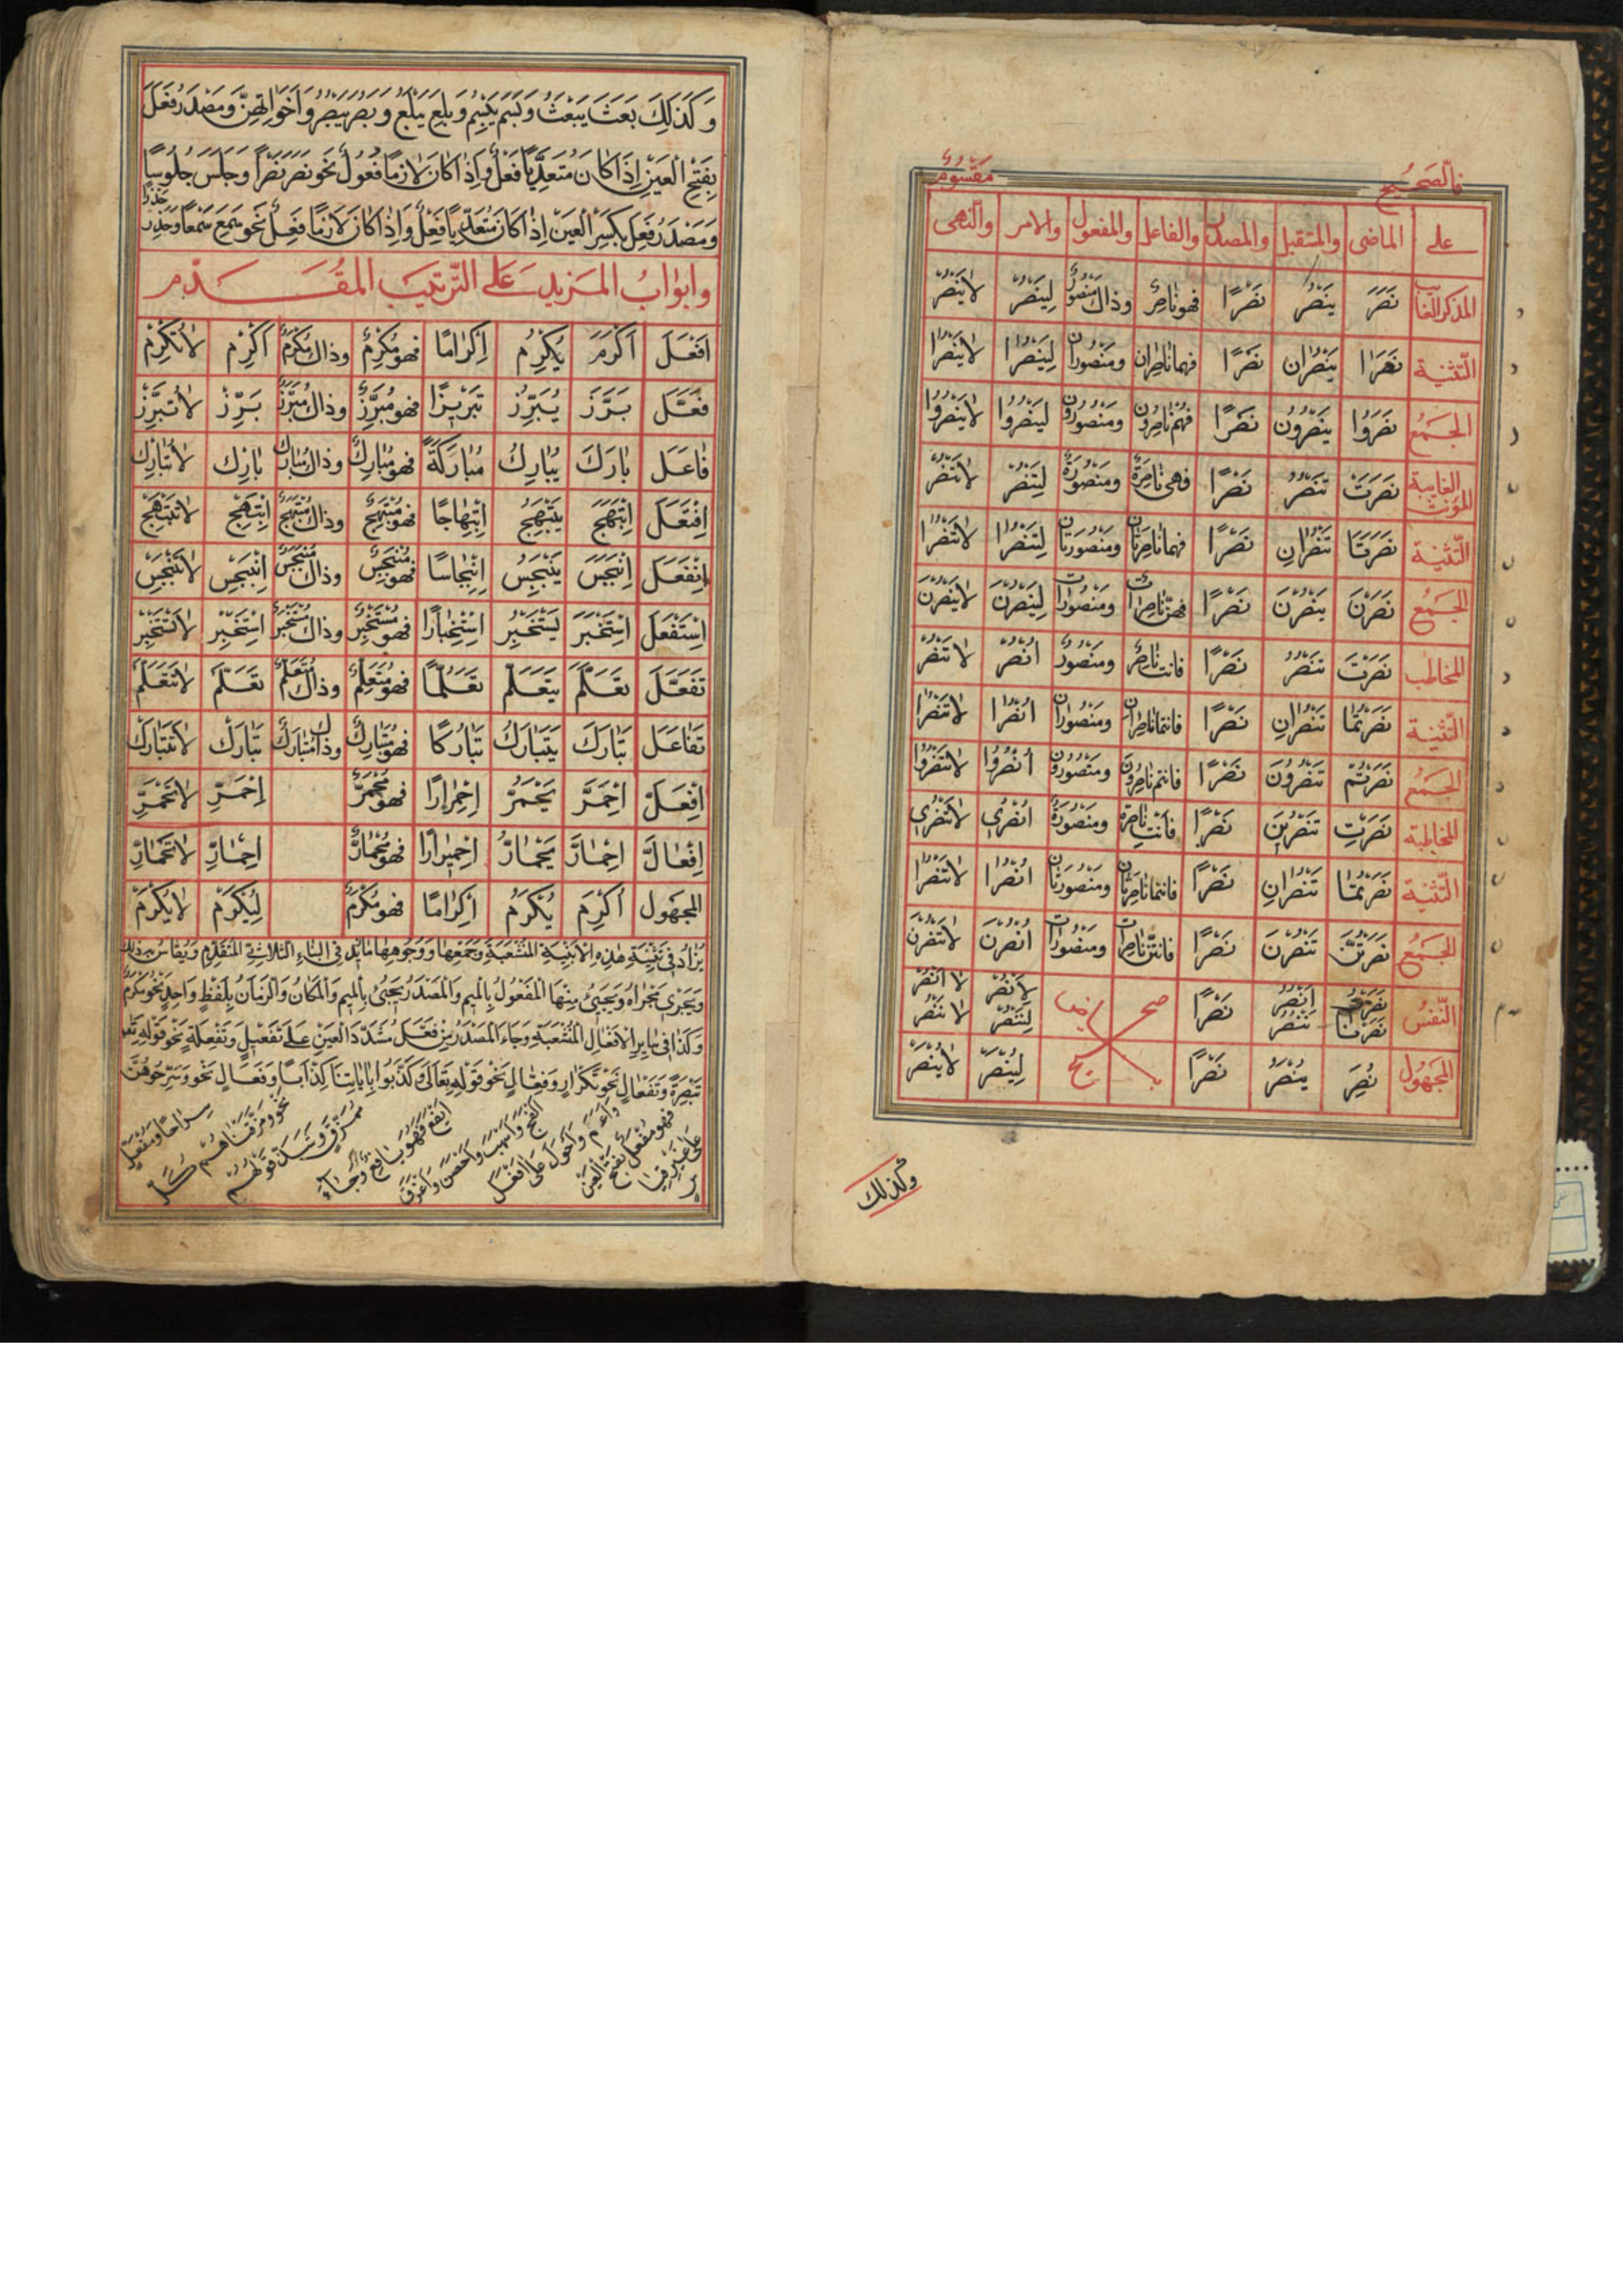 فالصحيح مقسوم
على الماضى والمستقبل والمصدر والفاعل والمفعول والامر والنهى
المذكر الغائب نَصَرَ يَنْصُرُ نَصْرًا فهو ناصِرٌ وذاك مَنْصُورٌ لِيَنْصُرْ لا يَنْصُرْ
التثنية نَصَرَا يَنْصُرَانِ نَصْرًا فهما ناصِرانِ ومنصورانِ لِيَنْصُرا لا يَنْصُرا
الجمع نَصَرُوا يَنْصُرُونَ نَصْرًا فهم ناصِرُونَ ومنصورُونَ لِيَنْصُرُوا لا يَنْصُرُوا
الغايبة المؤنث نَصَرَتْ تَنْصُرُ نَصْرًا فهى ناصِرَةٌ ومنصورَةٌ لِتَنْصُرْ لا تَنْصُرْ
التثنية نَصَرَتَا تَنْصُرَانِ نَصْرًا فهما ناصِرَتانِ ومنصورَتانِ لِتَنْصُرا لا تَنْصُرا
الجمع نَصَرْنَ يَنْصُرْنَ نَصْرًا فهنّ ناصِراتٌ ومنصوراتٌ لِيَنْصُرْنَ لا يَنْصُرْنَ
المخاطب نَصَرْتَ تَنْصُرُ نَصْرًا فانت ناصِرٌ ومنصورٌ انْصُرْ لا تَنْصُرْ
التثنية نَصَرْتُمَا تَنْصُرَانِ نَصْرًا فانتما ناصِرانِ ومنصورانِ انْصُرا لا تَنْصُرا
الجمع نَصَرْتُمْ تَنْصُرُونَ نَصْرًا فانتم ناصِرُونَ ومنصورُونَ اُنْصُرُوا لا تَنْصُرُوا
المخاطبة نَصَرْتِ تَنْصُرِينَ نَصْرًا فانتِ ناصِرَةٌ ومنصورَةٌ انْصُرِى لا تَنْصُرِى
التثنية نَصَرْتُمَا تَنْصُرَانِ نَصْرًا فانتما ناصِرَتانِ ومنصورَتانِ انْصُرا لا تَنْصُرا
الجمع نَصَرْتُنَّ تَنْصُرْنَ نَصْرًا فانتنّ ناصِراتٌ ومنصوراتٌ اُنْصُرْنَ لا تَنْصُرْنَ
النفس نَصَرْتُ نَصَرْنَا اَنْصُرُ نَنْصُرُ نَصْرًا صح ايضا لِاَنْصُرْ لِنَنْصُرْ لا اَنْصُرْ لا نَنْصُرْ
المجهول نُصِرَ يُنْصَرُ نَصْرًا لِيُنْصَرْ لا يُنْصَرْ
وكذلك
وَكَذٰلِكَ بَعَثَ يَبْعَثُ وَبَسَمَ يَبْسِمُ وَبَلِعَ يَبْلَعُ وَبَصُرَ يَبْصُرُ وَاَخَواتِهِنَّ وَمَصْدَرُ فَعَلَ
بِفَتْحِ الْعَيْنِ اِذَا كَانَ مُتَعَدِّيًا فَعْلٌ وَاِذَا كَانَ لازِمًا فُعُولٌ نَحْوُ نَصَرَ نَصْرًا وَجَلَسَ جُلُوسًا
وَمَصْدَرُ فَعِلَ بِكَسْرِ الْعَيْنِ اِذَا كَانَ مُتَعَدِّيًا فَعْلٌ وَاِذَا كَانَ لازِمًا فَعَلٌ نَحْوُ سَمِعَ سَمْعًا وَحَذِرَ حَذَرًا
وابوابُ المزيد على الترتيب المقدم
اَفْعَلَ اَكْرَمَ يُكْرِمُ اِكْرامًا فهو مُكْرِمٌ وذاك مُكْرَمٌ اَكْرِمْ لا تُكْرِمْ
فَعَّلَ بَرَّزَ يُبَرِّزُ تَبْرِيزًا فهو مُبَرِّزٌ وذاك مُبَرَّزٌ بَرِّزْ لا تُبَرِّزْ
فاعَلَ بارَكَ يُبارِكُ مُبارَكَةً فهو مُبارِكٌ وذاك مُبارَكٌ بارِكْ لا تُبارِكْ
اِفْتَعَلَ اِبْتَهَجَ يَبْتَهِجُ اِبْتِهاجًا فهو مُبْتَهِجٌ وذاك مُبْتَهَجٌ اِبْتَهِجْ لا تَبْتَهِجْ
اِنْفَعَلَ اِنْبَجَسَ يَنْبَجِسُ اِنْبِجاسًا فهو مُنْبَجِسٌ وذاك مُنْبَجَسٌ اِنْبَجِسْ لا تَنْبَجِسْ
اِسْتَفْعَلَ اِسْتَخْبَرَ يَسْتَخْبِرُ اِسْتِخْبارًا فهو مُسْتَخْبِرٌ وذاك مُسْتَخْبَرٌ اِسْتَخْبِرْ لا تَسْتَخْبِرْ
تَفَعَّلَ تَعَلَّمَ يَتَعَلَّمُ تَعَلُّمًا فهو مُتَعَلِّمٌ وذاك مُتَعَلَّمٌ تَعَلَّمْ لا تَتَعَلَّمْ
تَفاعَلَ تَبارَكَ يَتَبارَكُ تَبارُكًا فهو مُتَبارِكٌ وذاك مُتَبارَكٌ تَبارَكْ لا تَتَبارَكْ
اِفْعَلَّ اِحْمَرَّ يَحْمَرُّ اِحْمِرارًا فهو مُحْمَرٌّ اِحْمَرِّ لا تَحْمَرِّ
اِفْعالَّ اِحْمارَّ يَحْمارُّ اِحْمِيرارًا فهو مُحْمارٌّ اِحْمارِّ لا تَحْمارِّ
المجهول اُكْرِمَ يُكْرَمُ اِكْرامًا فهو مُكْرَمٌ لِيُكْرَمْ لا يُكْرَمْ
يُزادُ فى تَثْنِيَةِ هٰذِهِ الْاَبْنِيَةِ الْمُنْشَعِبَةِ وَجَمْعِها وَوُجُوهِها ما فى الثلاثى المتقدم ويقاس بذلك
وَيَجْرِى مَجْراهُ وَيَجِىءُ مِنْهَا الْمَفْعُولُ بِالْمِيمِ وَالْمَصْدَرُ يَجِىءُ بِالْمِيمِ وَالْمَكانُ وَالزَّمانُ بِلَفْظٍ واحِدٍ نَحْوُ مُكْرَمٌ
وَكَذا فى سايِرِ الْاَفْعالِ الْمُنْشَعِبَةِ وَجاءَ الْمَصْدَرُ مِنْ فَعَّلَ مُشَدَّدَ الْعَيْنِ عَلَى تَفْعِيلٍ وَتَفْعِلَةٍ نَحْوُ قَوْلِهِ
تَبْصِرَةً وَتَفْعالٍ نَحْوُ تَكْرارٍ وَفِعّالٍ نَحْوُ قَوْلِهِ تَعالَى وَكَذَّبُوا بِاٰياتِنا كِذّابًا وَفَعالٍ نَحْوُ وَسَرِّحُوهُنَّ
سراحًا ومفعّل نحو ومزّقناهم كل ممزّق وشذ قولهم ايفع فهو يافع وجاء